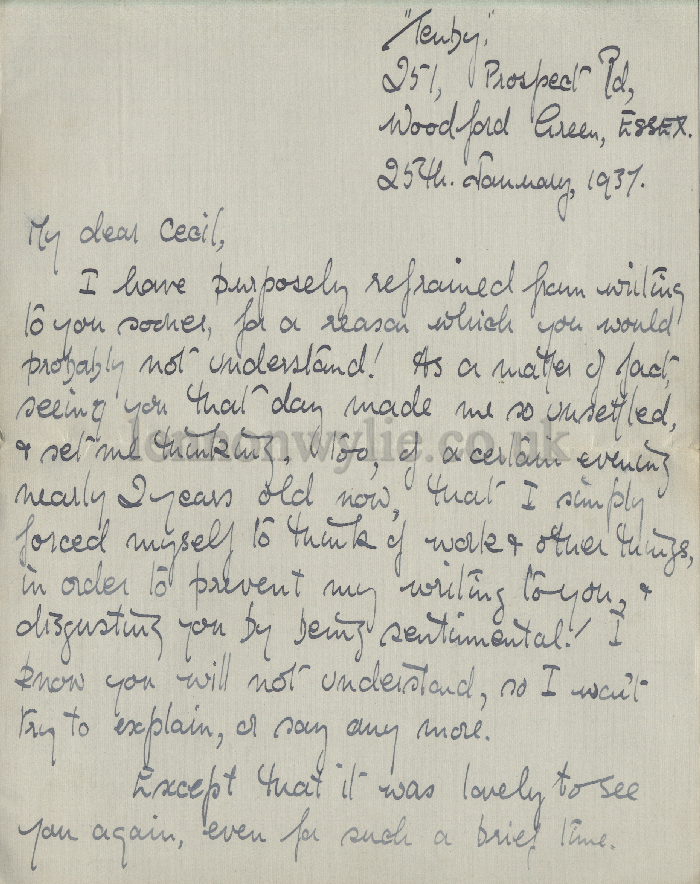 "Tenby."
251, Prospect Rd,
Woodford Green, ESSEX.
25th. January, 1937.
My dear Cecil,
I have purposely refrained from writing
to you sooner, for a reason which you would
probably not understand! As a matter of fact,
seeing you that day made me so unsettled,
& set me thinking, too, of a certain evening
lennonwylie.co.uk
nearly 2 years old now, that I simply
forced myself to think of work & other things,
in order to prevent my writing to you, &
disgusting you by being sentimental! I
know you will not understand, so I won't
try to explain, or say any more.
Except that it was lovely to see
you again, even for such a brief time.